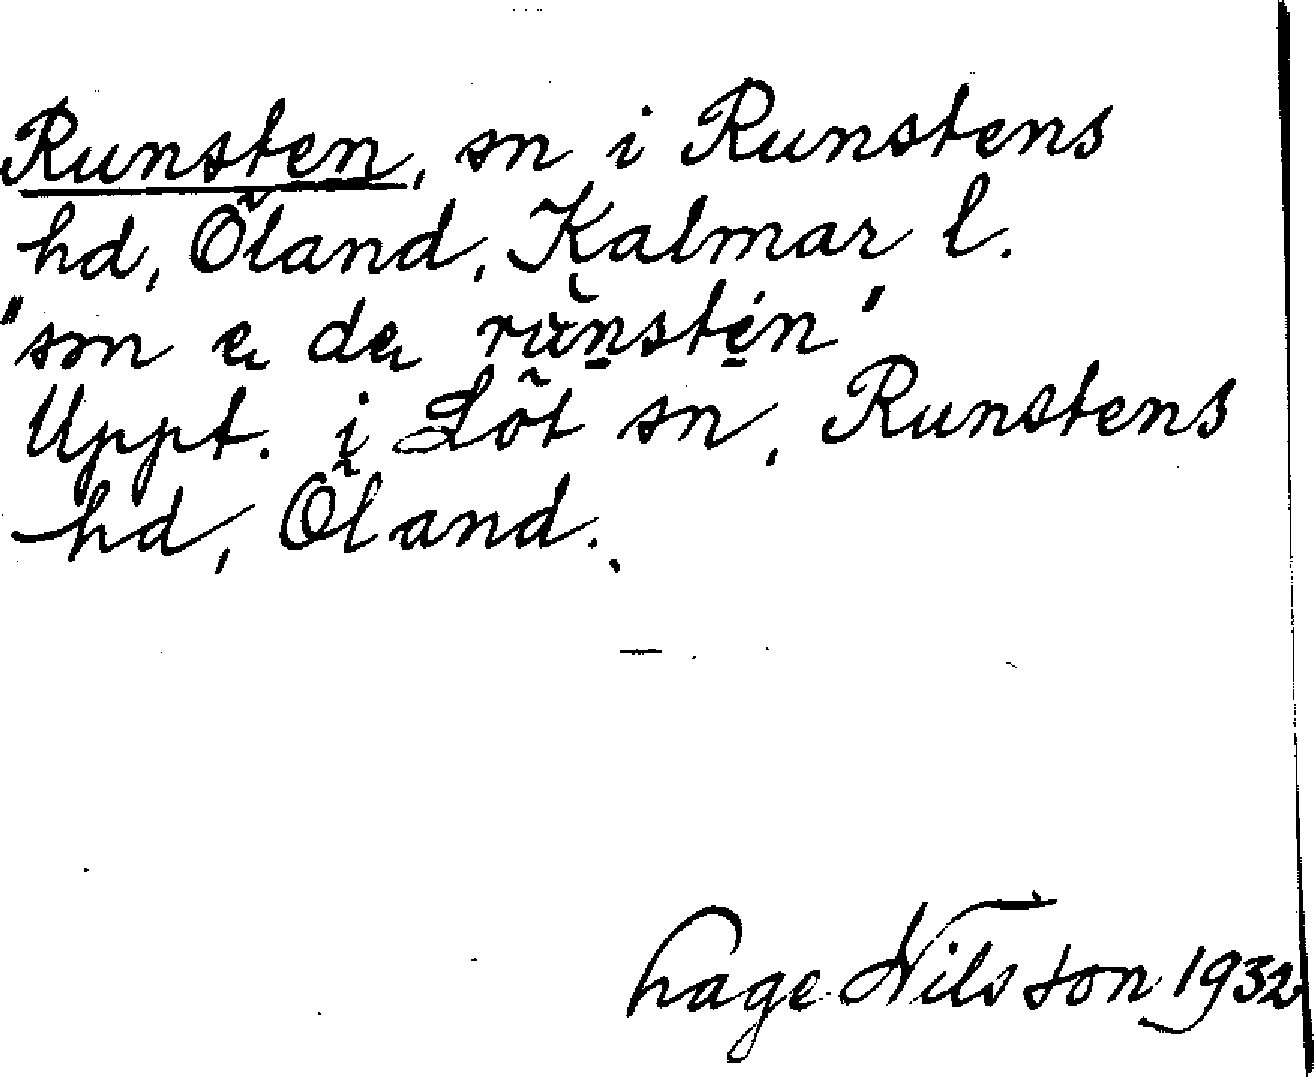 Runsten, sn i Runstens
hd, Öland, Kalmar l.
"sm e de runsten"
Uppt. i Löt sn, Runstens
hd, Öland.
hage Nilsson 1932